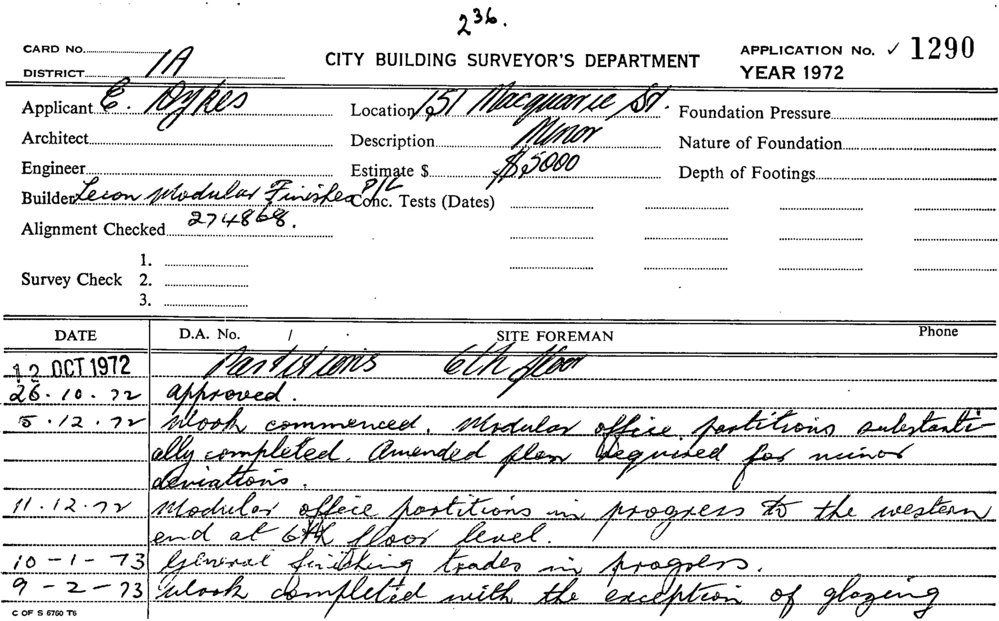 236.
CARD No.
DISTRICT 1A
CITY BUILDING SURVEYOR'S DEPARTMENT
APPLICATION No. ✓ 1290
YEAR 1972
Applicant E. Dykes
Location 151 Macquarie St.
Foundation Pressure
Architect
Description Minor
Nature of Foundation
Engineer
Estimate $ $5000
Depth of Footings
Builder Lecon Modular Finishes P/L
Conc. Tests (Dates)
Alignment Checked 274868.
Survey Check
1.
2.
3.
DATE D.A. No. / SITE FOREMAN Phone
12 OCT 1972 Partitions 6th floor
26.10.72 approved.
5.12.72 Work commenced. Modular office partitions substanti-
ally completed. Amended plan required for minor
deviations.
11.12.72 Modular office partitions in progress to the western
end at 6th floor level.
10-1-73 General finishing trades in progress.
9-2-73 Work completed with the exception of glazing
C OF S 6760 T6